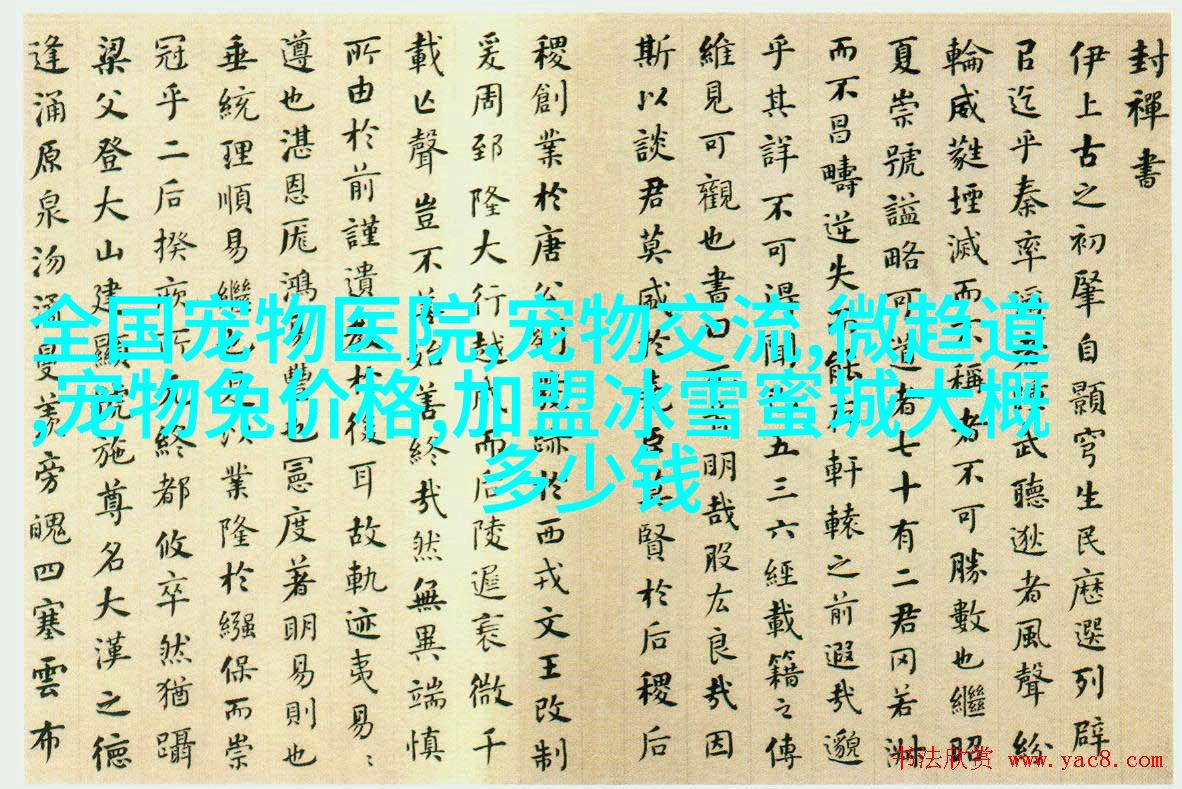 封禪書
伊上古之初肇自顥穹生民歷選列辟
㠯迄乎秦率者武聽逖者風聲紛
輪威蕤堙滅而不稱者不可勝數也繼昭
夏崇號謚略可道者七十有二君罔若淑
而不昌疇逆失而能存軒轅之前遐哉邈
乎其詳不可得聞已五三六經載籍之傳
維見可觀也書曰元首明哉股厷良哉因
斯以談君莫盛於堯臣莫賢於后稷后
稷創業於唐公劉發跡於西戎文王改制
爰周郅隆大行越成而后陵遲衰微千
載亡聲豈不善始善終哉然無異端慎
所由於前謹遺教於後耳故軌迹夷易〻
遵也湛恩厖鴻易豐也憲度著明易則也
垂統理順易繼也是以業隆於繈保而崇
冠乎二后揆厥所元終都攸卒然猶躡
梁父登大山建顯號施尊名大漢之德
逢涌原泉沕潏曼羨旁魄四塞雲布
全国宠物医院,宠物交流,微趋道
,宠物兔价格,加盟冰雪蜜城大概
多少钱
书法欣赏 www.yac8.com